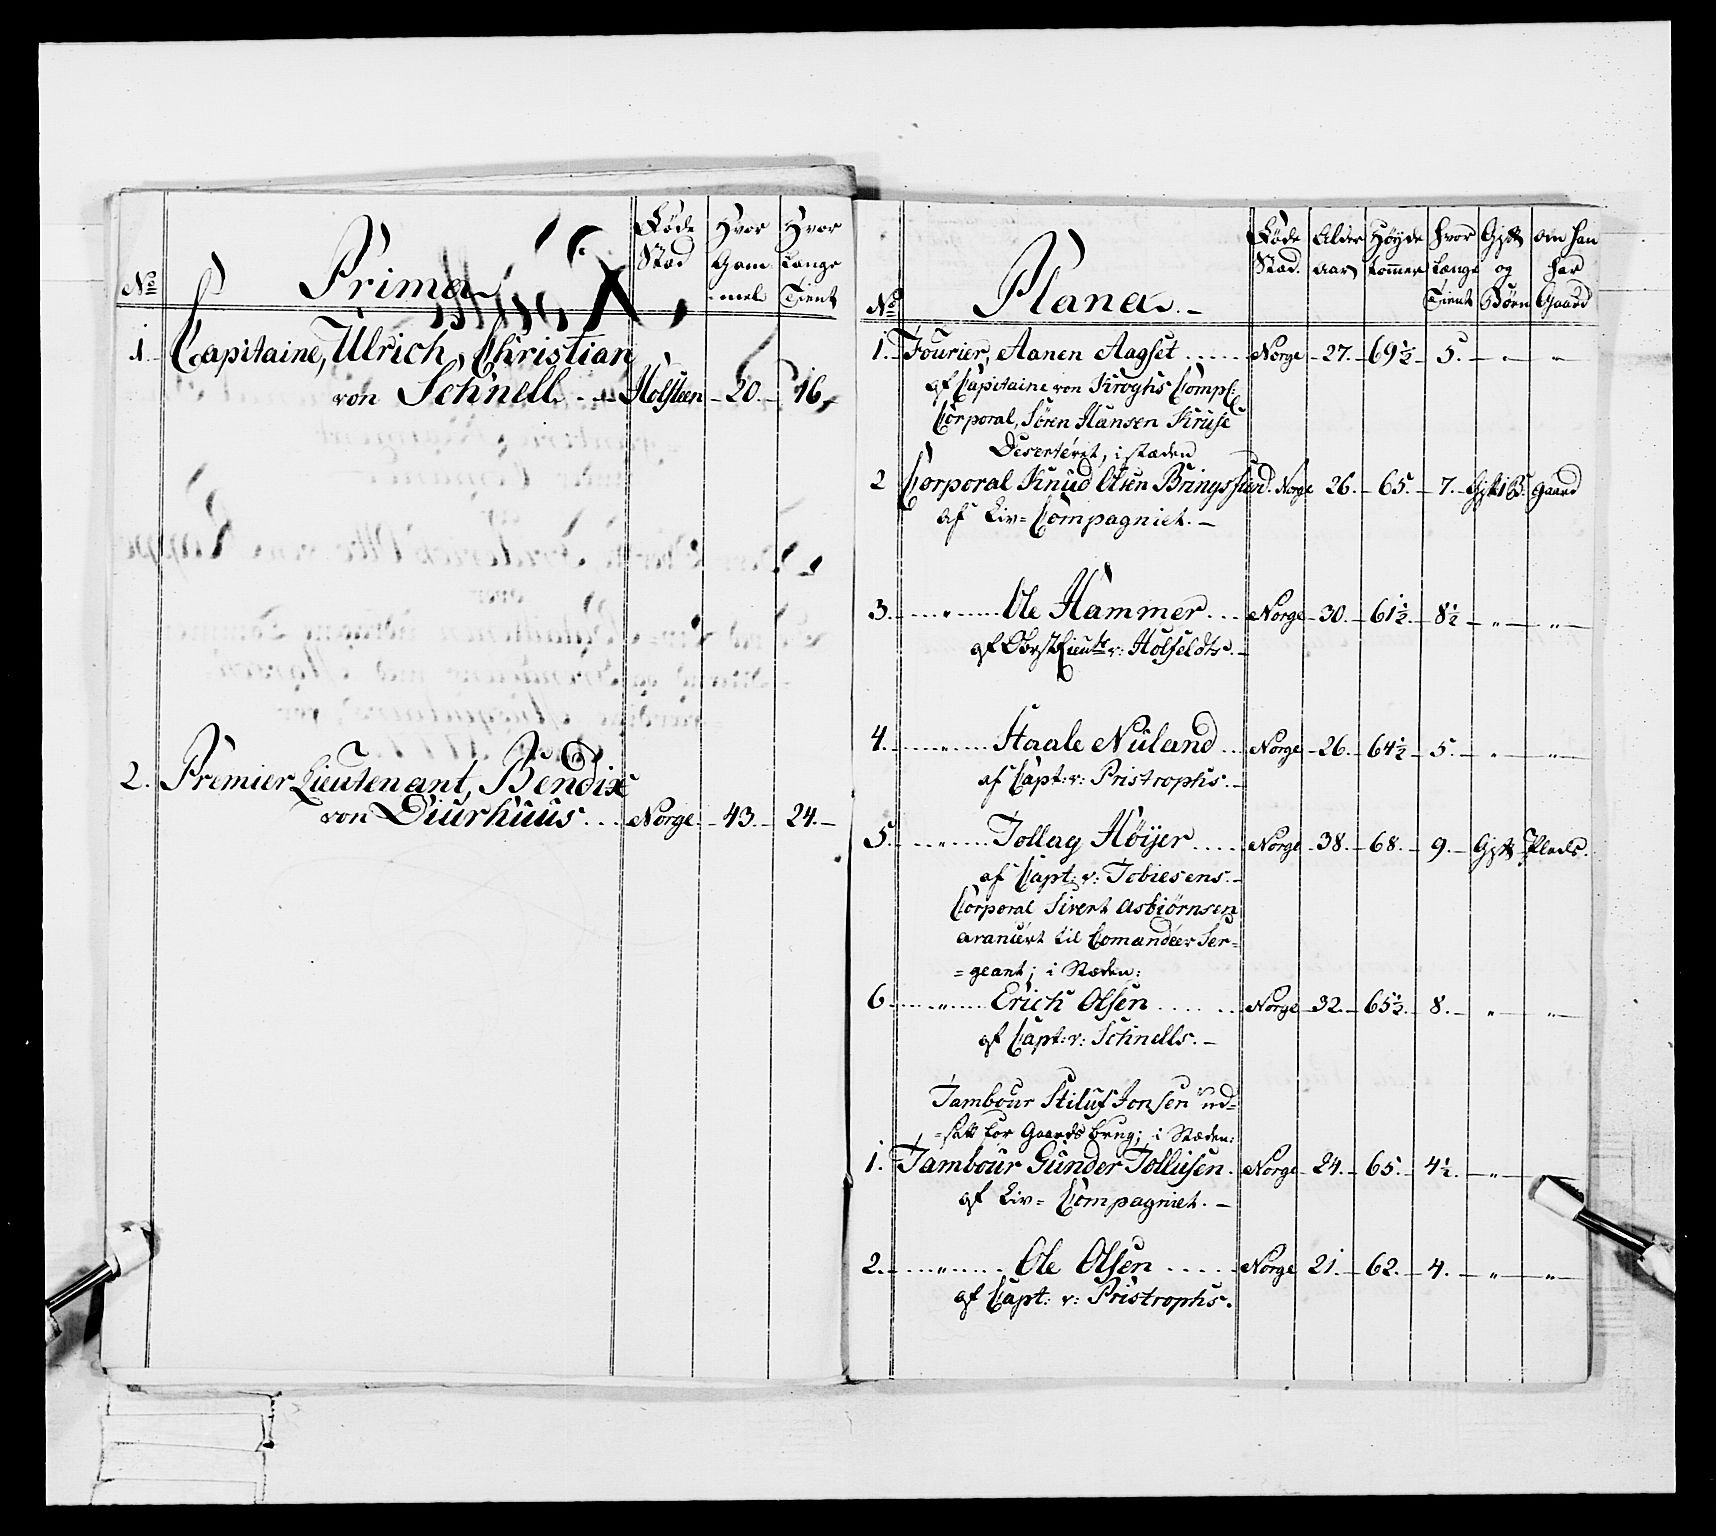 No Prima Føde Stæd Hvor Gam-mel Hvor Længe Tient
1. Capitaine, Ulrich, Christian
von Schnell. Holsteen 20. 16.
2. Premier Lieutenant, Bendix
von Diurhuus Norge 43. 24.
No Plana. Føde Stæd. Alder aar Høyde tommer Hvor Længe Tient Gift og Børn om han har Gaard
1. Fourier, Aanen Aagset Norge 27. 69½ 5. „ „
af Capitaine von Kroghs Comp:
Corporal, Søren Hansen Kruse
Deserteret, i stæden
2 Corporal Knud Olsen Bringsfiord. Norge 26. 65. 7. Gift 1 B. Gaard
af Liv=Compagniet.
3. „ Ole Hammer Norge 30. 61½ 8½ „ „
af Obrst Lieut: v: Holfeldts.
4. „ Staale Nuland Norge 26. 64½ 5. „ „
af Capt: v: Pristrophs.
5. „ Tollag Høiyer Norge 38. 68. 9. Gift Plads.
af Capt: v: Tobiesens.
Corporal Sivert Asbiørnsen
avancert til Comandeer Ser=
=geant; i Stæden:
6 „ Erich Olsen Norge 32. 65½ 8. „ „
af Capt: v: Schnells.
Tambour Stiluf Jonsen ud=
=satt for Gaards brug; i Stæden:
1. Tambour Gunder Tollusen. Norge 24. 65. 4½. „
af Liv=Compagniet.
2. „ Ole Olsen Norge 21. 62. 4. „ „
af Capt: v: Pristrophs.